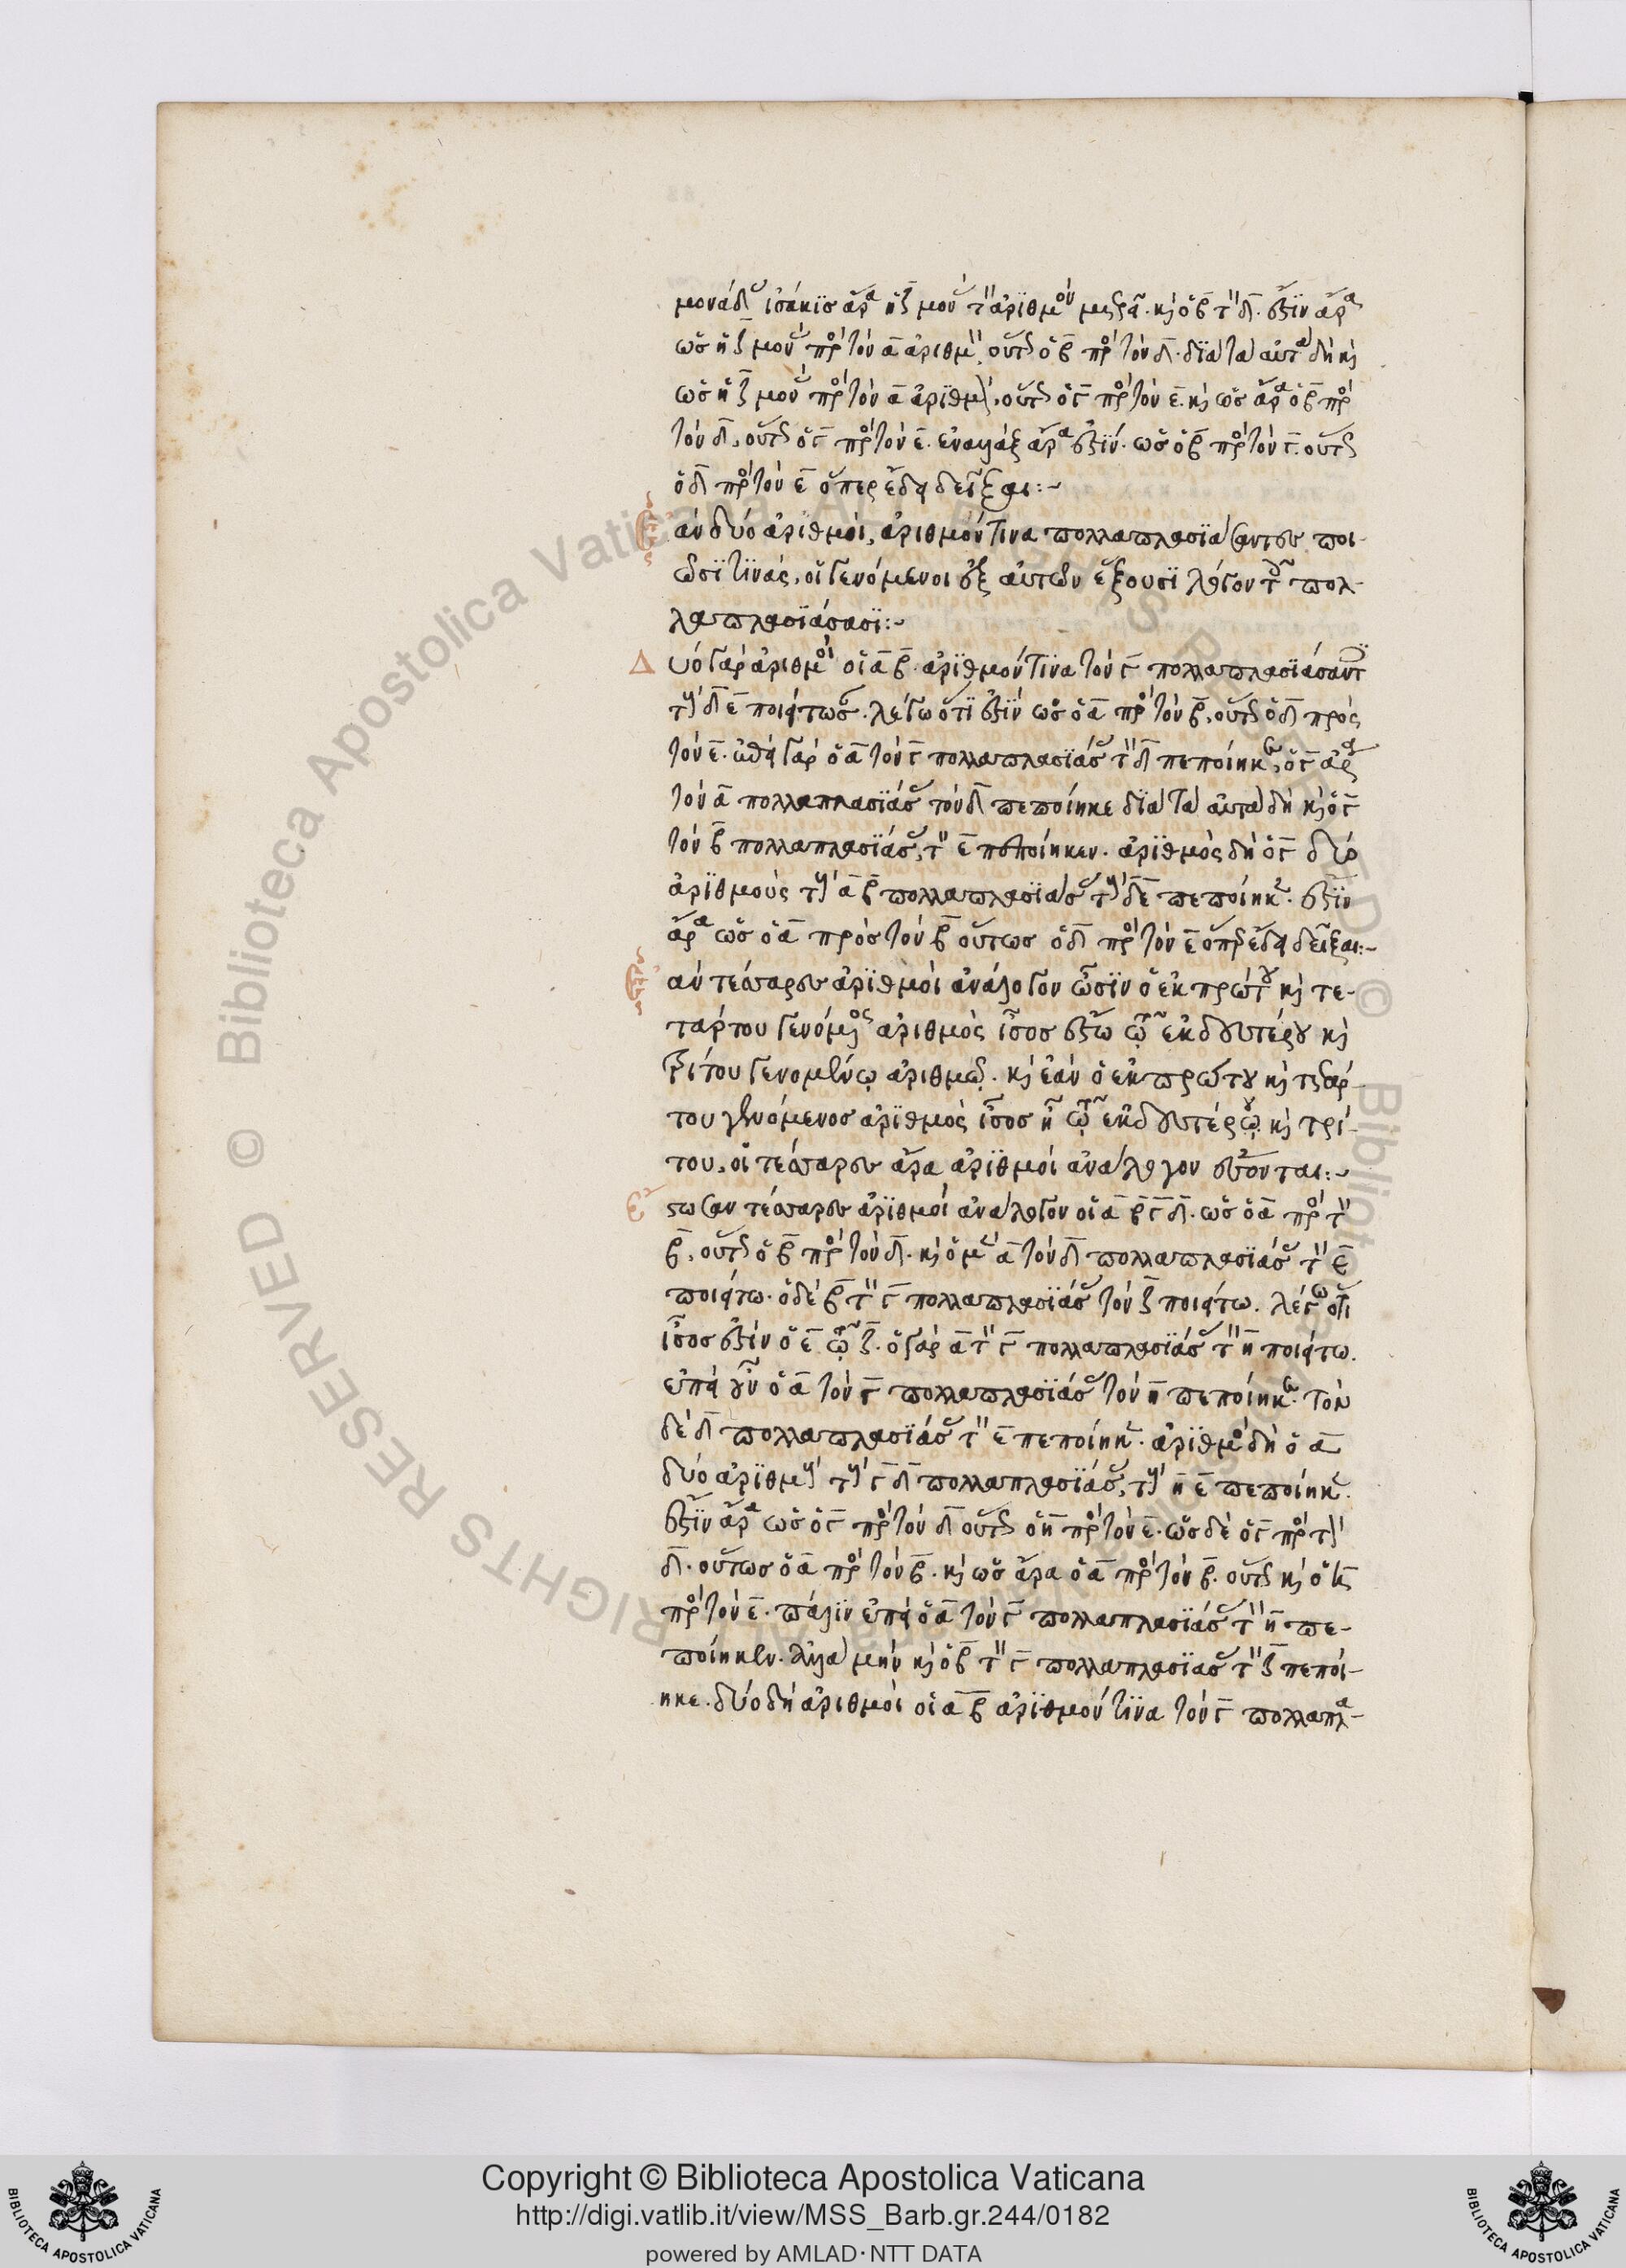 μονάδας ἰσάκις ἄρα ἡ ζ μονὰς τὸν ἀριθμὸν μετρεῖ. καὶ ὁ β τὸν δ. ἔστιν ἄρα
ὡς ἡ ζ μονὰς πρὸς τὸν α ἀριθμὸν, οὕτως ὁ β πρὸς τὸν δ. διὰ τὰ αὐτὰ δὴ καὶ
ὡς ἡ ζ μονὰς πρὸς τὸν α ἀριθμὸν, οὕτως ὁ γ πρὸς τὸν ε. καὶ ὡς ἄρα ὁ β πρὸς
τὸν δ, οὕτως ὁ γ πρὸς τὸν ε. ἐναλλὰξ ἄρα ἐστίν. ὡς ὁ β πρὸς τὸν γ. οὕτως
ὁ δ πρὸς τὸν ε ὅπερ ἔδει δεῖξαι:~
ἐὰν δύο ἀριθμοὶ, ἀριθμόν τινα πολλαπλασιάσαντες ποι-
ῶσι τινάς, οἱ γενόμενοι ἐξ αὐτῶν ἕξουσι λόγον τοῖς πολ-
λαπλασιάσασι:~
Δύο γὰρ ἀριθμοὶ οἱ α β. ἀριθμόν τινα τὸν γ πολλαπλασιάσαντες
τοὺς δ ε ποιείτωσαν. λέγω ὅτι ἐστίν ὡς ὁ α πρὸς τὸν β, οὕτως ὁ δ πρὸς
τὸν ε. ἐπεὶ γὰρ ὁ α τὸν γ πολλαπλασιάσας τὸν δ πεποίηκεν, ὁ γ ἄρα
τὸν α πολλαπλασιάσας τὸν δ πεποίηκε διὰ τὰ αὐτὰ δὴ καὶ ὁ γ
τὸν β πολλαπλασιάσας, τὸν ε πεποίηκεν. ἀριθμὸς δὴ ὁ γ δύο
ἀριθμοὺς τοὺς α β πολλαπλασιάσας τοὺς δ ε πεποίηκεν. ἔστιν
ἄρα ὡς ὁ α πρὸς τὸν β οὕτως ὁ δ πρὸς τὸν ε ὅπερ ἔδει δεῖξαι:~
ἐὰν τέσσαρες ἀριθμοὶ ἀνάλογον ὦσιν ὁ ἐκ πρώτου καὶ τε-
τάρτου γενόμενος ἀριθμὸς ἴσος ἔσται τῷ ἐκ δευτέρου καὶ
τρίτου γενομένῳ ἀριθμῷ. καὶ ἐὰν ὁ ἐκ πρώτου καὶ τετάρ-
του γενόμενος ἀριθμὸς ἴσος ᾖ τῷ ἐκ δευτέρου καὶ τρί-
του, οἱ τέσσαρες ἄρα ἀριθμοὶ ἀνάλογον ἔσονται:~
Ἔστωσαν τέσσαρες ἀριθμοὶ ἀνάλογον οἱ α β γ δ. ὡς ὁ α πρὸς τὸν
β, οὕτως ὁ β πρὸς τὸν δ. καὶ ὁ μὲν α τὸν δ πολλαπλασιάσας τὸν ε
ποιείτω. ὁ δὲ β τὸν γ πολλαπλασιάσας τὸν ζ ποιείτω. λέγω ὅτι
ἴσος ἐστίν ὁ ε τῷ ζ. ὁ γὰρ α τὸν γ πολλαπλασιάσας τὸν η ποιείτω.
ἐπεὶ οὖν ὁ α τὸν γ πολλαπλασιάσας τὸν η πεποίηκεν. τὸν
δὲ δ πολλαπλασιάσας τὸν ε πεποίηκεν. ἀριθμὸς δὴ ὁ α
δύο ἀριθμοὺς τοὺς γ δ πολλαπλασιάσας, τοὺς η ε πεποίηκεν.
ἔστιν ἄρα ὡς ὁ γ πρὸς τὸν δ οὕτως ὁ η πρὸς τὸν ε. ὡς δὲ ὁ γ πρὸς τὸν
δ. οὕτως ὁ α πρὸς τὸν β. καὶ ὡς ἄρα ὁ α πρὸς τὸν β. οὕτως καὶ ὁ
πρὸς τὸν ε. πάλιν ἐπεὶ ὁ α τὸν γ πολλαπλασιάσας τὸν η πε-
ποίηκεν. ἀλλὰ μὴν καὶ ὁ β τὸν γ πολλαπλασιάσας τὸν ζ πεποί-
ηκε. δύο δὴ ἀριθμοὶ οἱ α β ἀριθμόν τινα τὸν γ πολλαπλα-
Copyright © Biblioteca Apostolica Vaticana
http://digi.vatlib.it/view/MSS_Barb.gr.244/0182
powered by AMLAD·NTT DATA